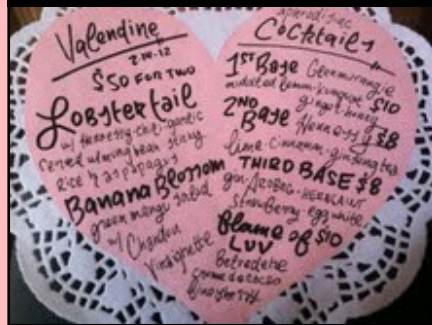 Valendine
2-14-12
$50 FOR TWO
Lobster tail
w/ Hennessy-chili-garlic
bean
Rice & asparagus
Banana Blossom
green mango salad
w/ Chandon
Vinaigrette
Aphrodisiac
Cocktails
1ST Base Glenmorangie
lemon-kumquat $10
ginger-honey
2ND Base Hennessy $8
lime-cinnamon-ginseng tea
THIRD BASE $8
gin
Strawberry egg white
Flame of $10
LUV
Belvedere
creme de cacao